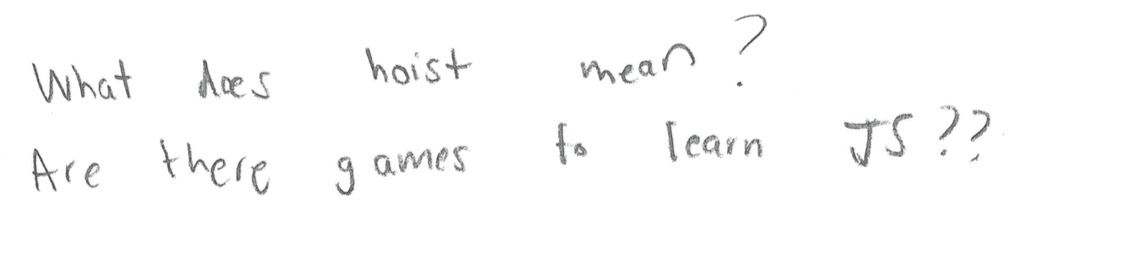 What does hoist mean?
Are there games to learn JS??